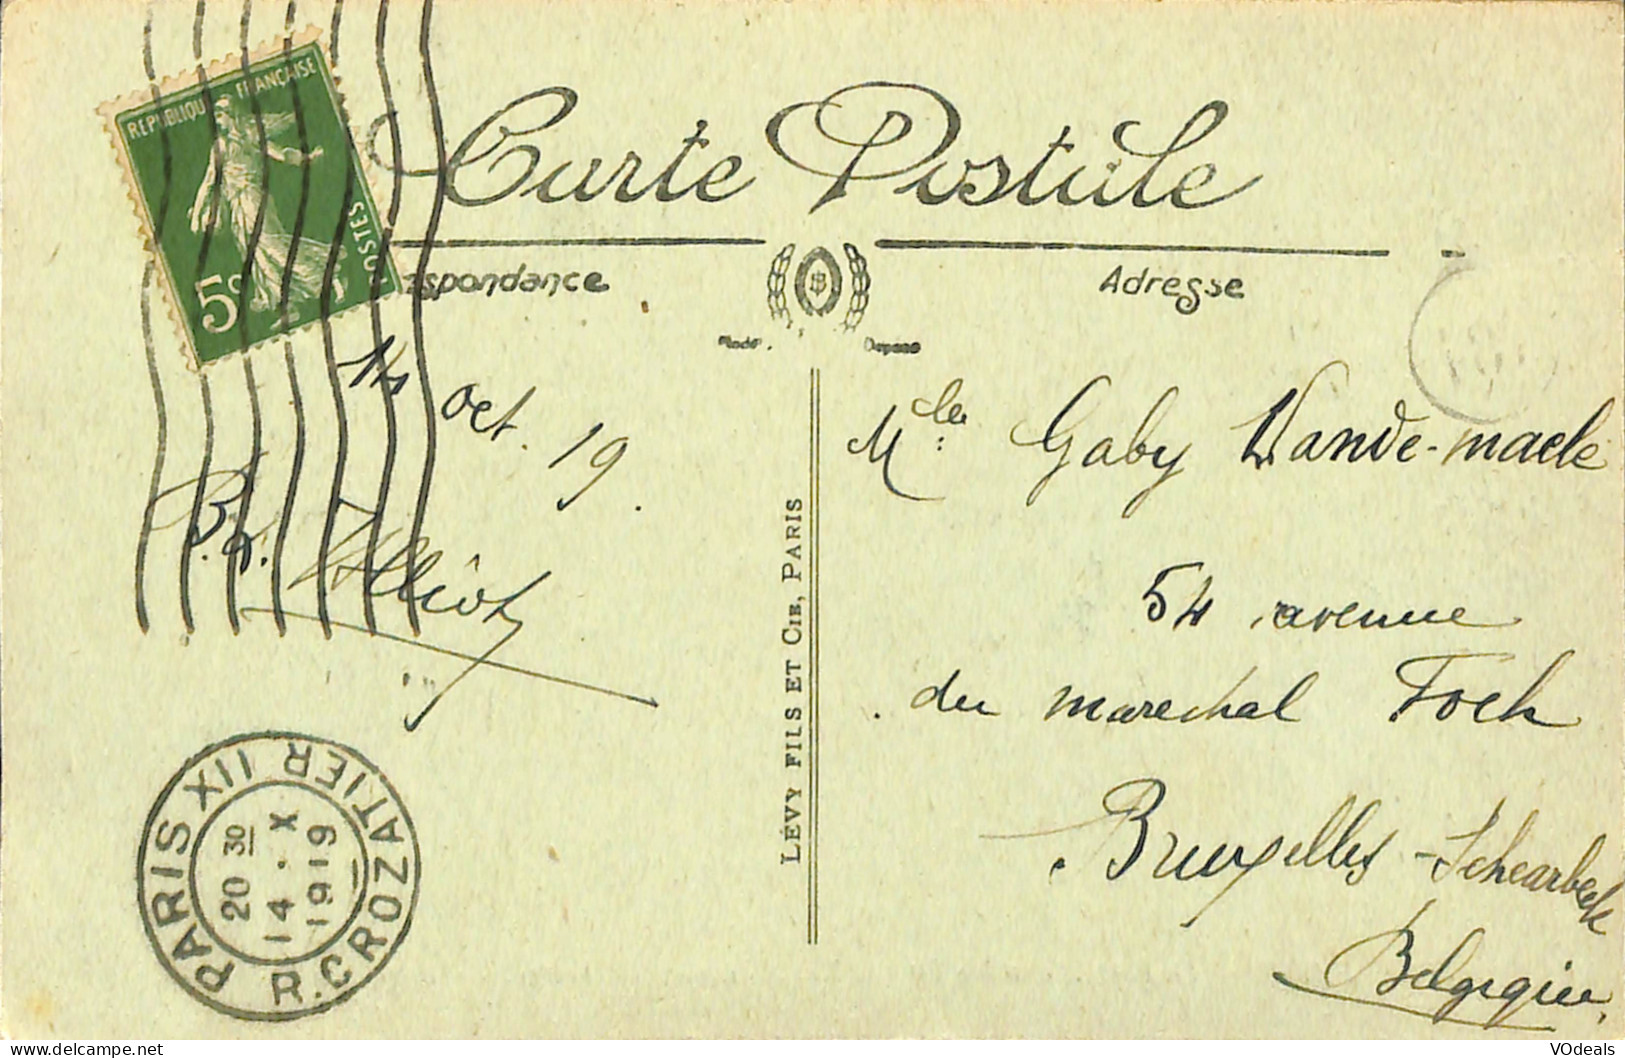 RÉPUBLIQUE FRANÇAISE
POSTES
5c
Carte Postale
espondance
Adresse
Modèle Déposé
14 Oct. 19.
Mlle Gaby Vande-maele
54 avenue
du marechal Foch
Bruxelles - Schearbeek
Belgique
LÉVY FILS ET CIE, PARIS
PARIS XII R. CROZATIER
20 30
14 · X
1919
VOdeals